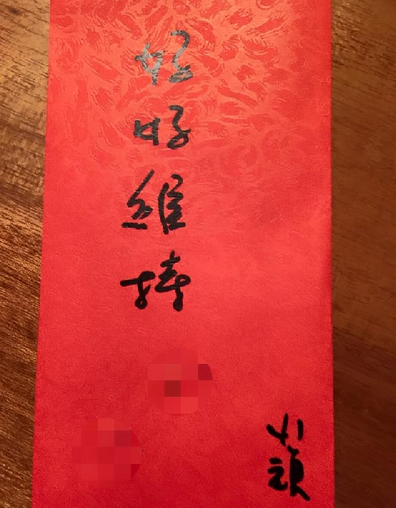 好好維持
小頭